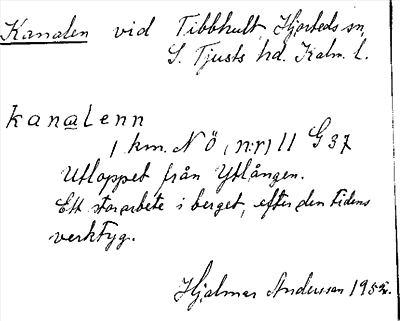 Kanalen vid Tibbhult, Hjorteds sn,
S. Tjusts hd. Kalm. l.
kanalenn
1 km. NÖ (nr) 11 G 37
Utloppet från Yxlången.
Ett storarbete i berget, efter den tidens
verktyg.
Hjalmar Andersson 1952.